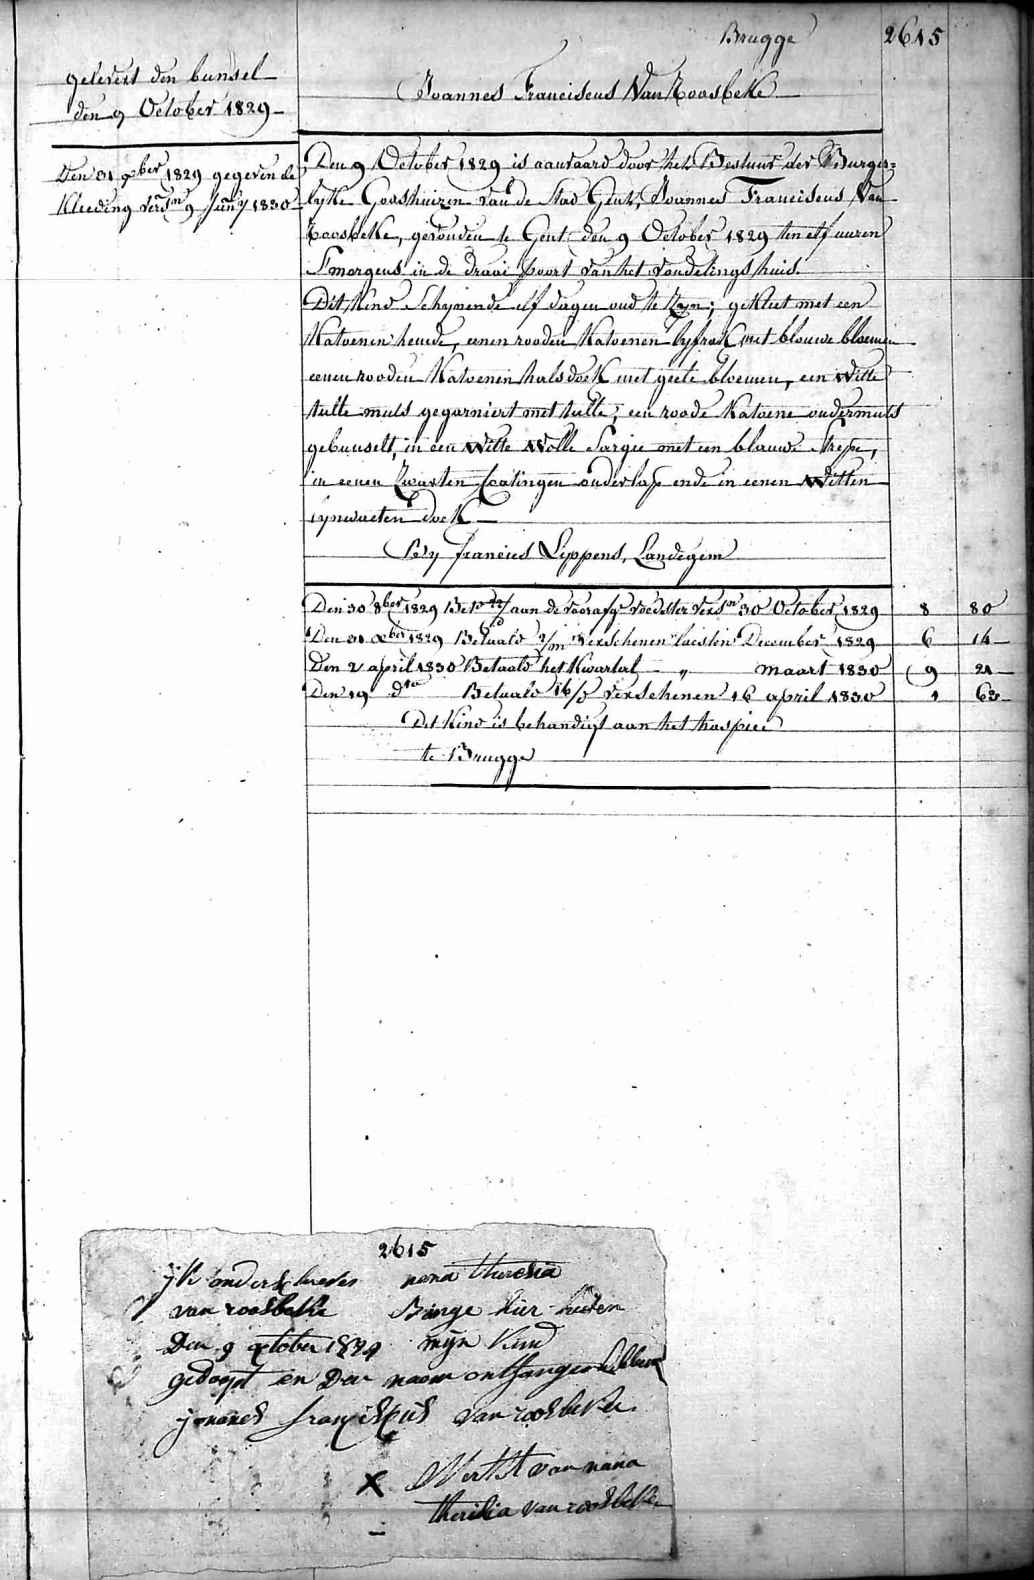 Brugge 2615
gelevert den bunsel
den 9 October 1829
Joannes Franciscus Van Roosbeke
Den 31 xber 1829 gegeven de
Kleeding versn 9 Juny 1830
Den 9 October 1829 is aanvaard door het Bestuur der Burger=
lyke Godshuizen van de Stad Gent, Joannes Franciscus Van
Roosbeke, gevonden te Gent den 9 October 1829 ten elf uuren
Smorgens in de draai poort van het vondelingshuis.
Dit Kind schynende elf dagen oud te Zyn; gekleet met een
Katoenen hemde, eenen rooden Katoenen lyfrok met blouwe bloemen
eenen rooden Katoenen halsdoek met geele bloemen, een Witte
tulle muts gegarniert met tulle; een roode Katoene ondermuts
gebunselt, in een Witte Wolle Sargie met een blauwe Strepe,
in eenen Zwarten Coatingen onderlap ende in eenen Witten
lynwaeten doek
by francies Lippens, Landegem
Den 30 8ber 1829 Bet aan de voorafge voedster versn 30 October 1829 8 80
Den 31 xber 1829 Betaald 2/m verschenen laesten December 1829 6 14
Den 2 april 1830 Betaald het Kwartal " maart 1830 9 21
Den 19 dto Betaald 16/d verschenen 16 april 1830 1 63
Dit Kind is behandigt aan het hospice
te Brugge
2615
jk onderschreven nana theresia
van roosbeke Binge hier heden
Den 9 october 1829 mijn kind
gedoopt en Den naam onthangen hebbende
joannes franciskus van roosbeke
X Merkt van nana
theresia van roosbeke